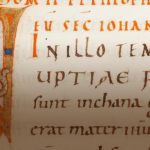 EU SEC IOHAN
IN ILLO TEM
UPTIAE F
sunt inchana
erat mater ihu